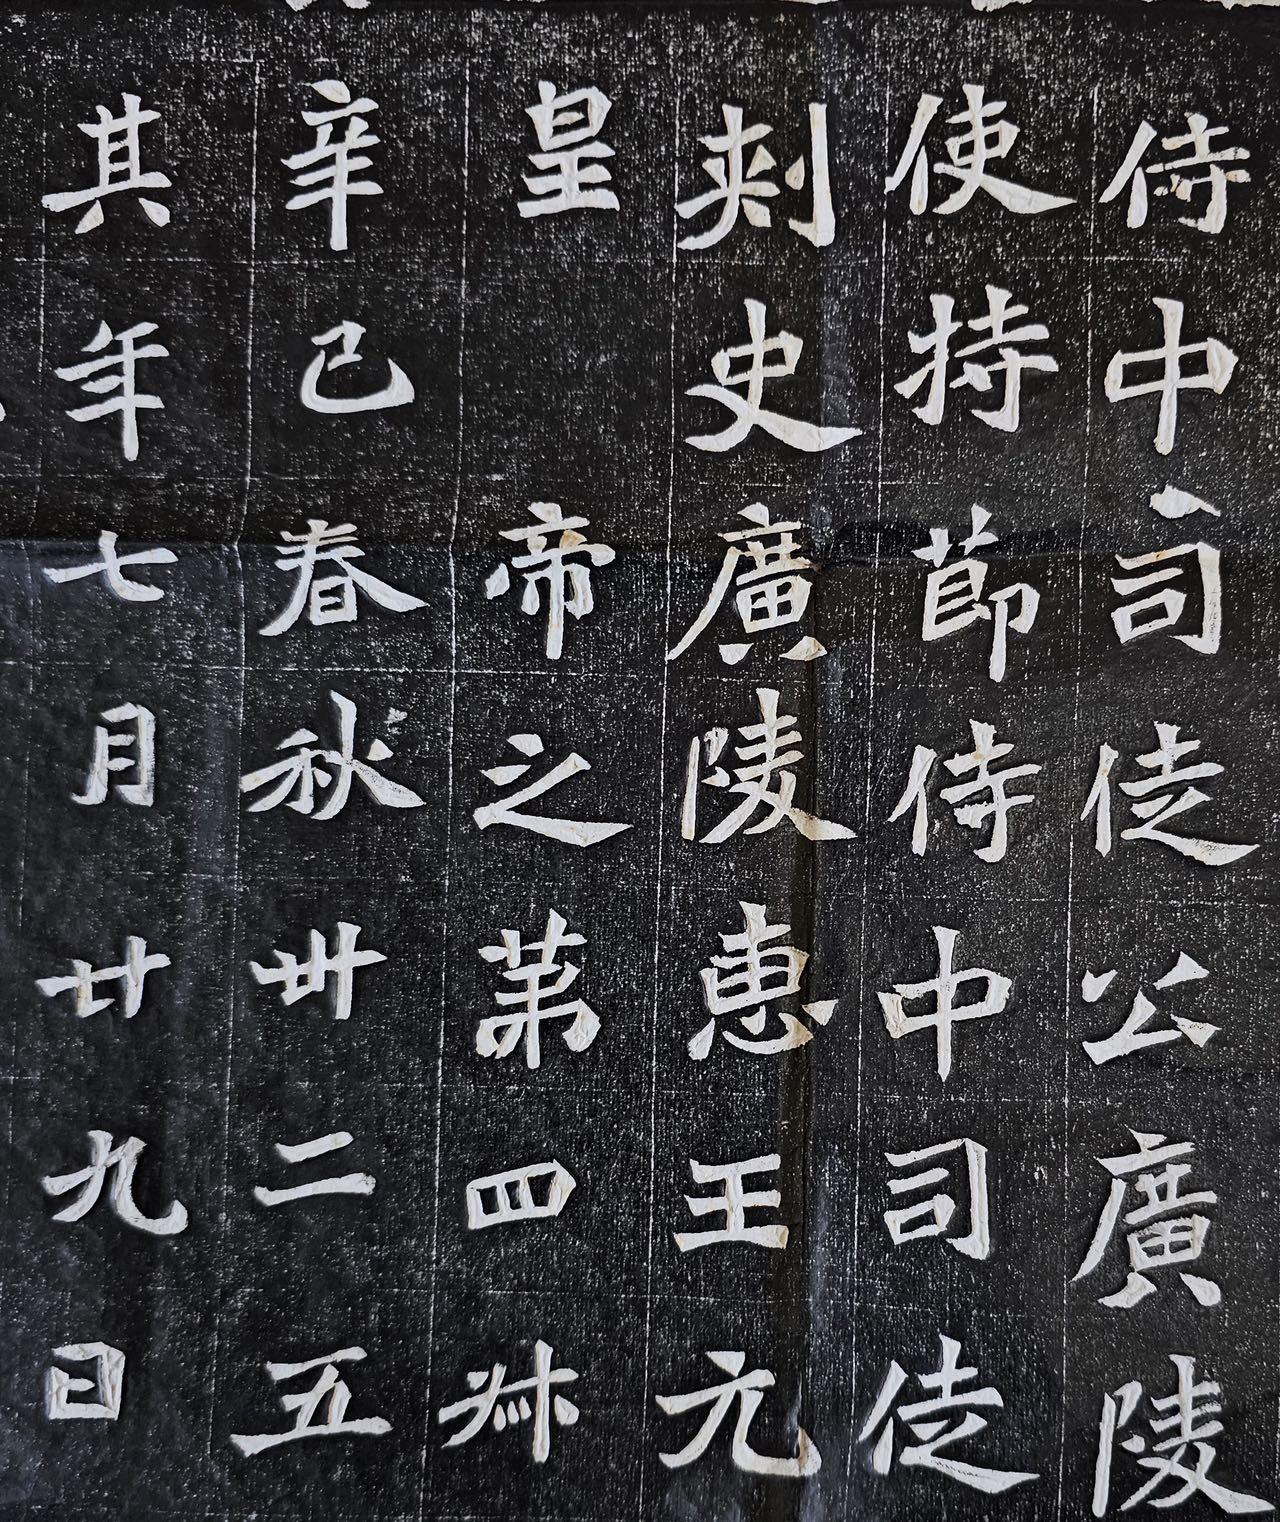 侍中司徒公廣陵
使持節侍中司徒
刾史廣陵惠王元
皇帝之苐四𡖖
辛巳春秋卅二五
其年七月廿九日